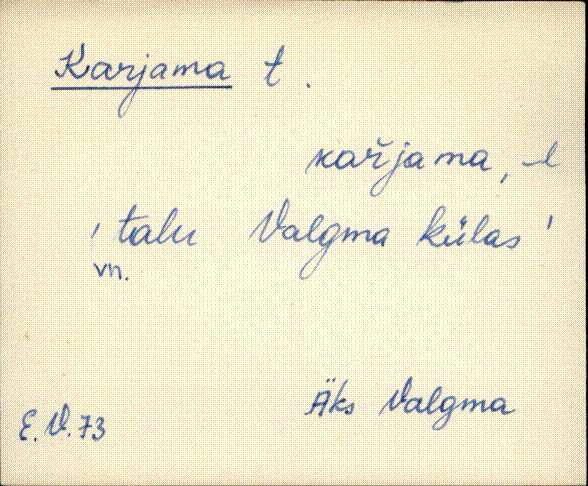 Karjama t.
kař̆jama, -l
' talu Valgma külas '
vn.
Äks Valgma
E. V. 73